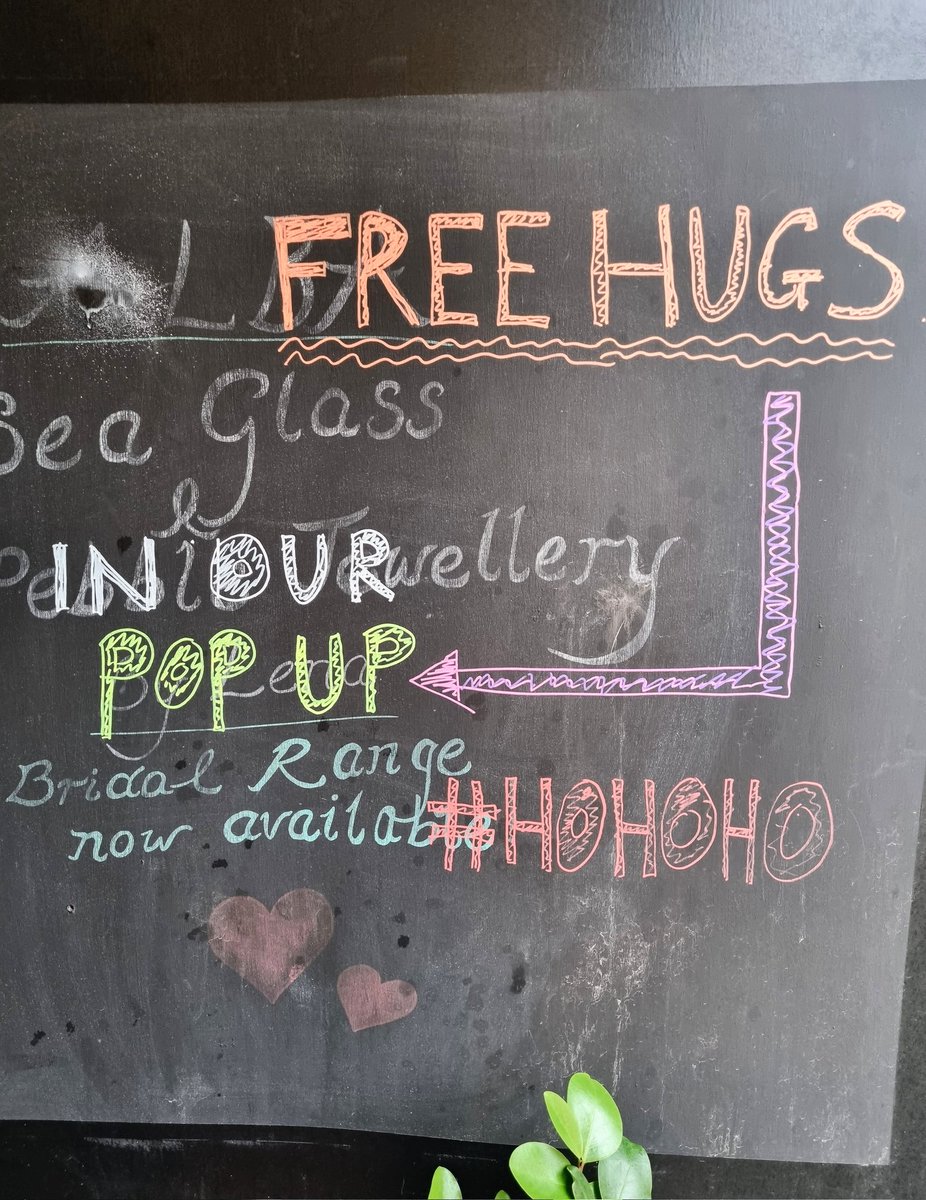 FREE HUGS
Sea Glass
Jewellery
IN OUR
POP UP
Bridal Range
now available
#HOHOHO